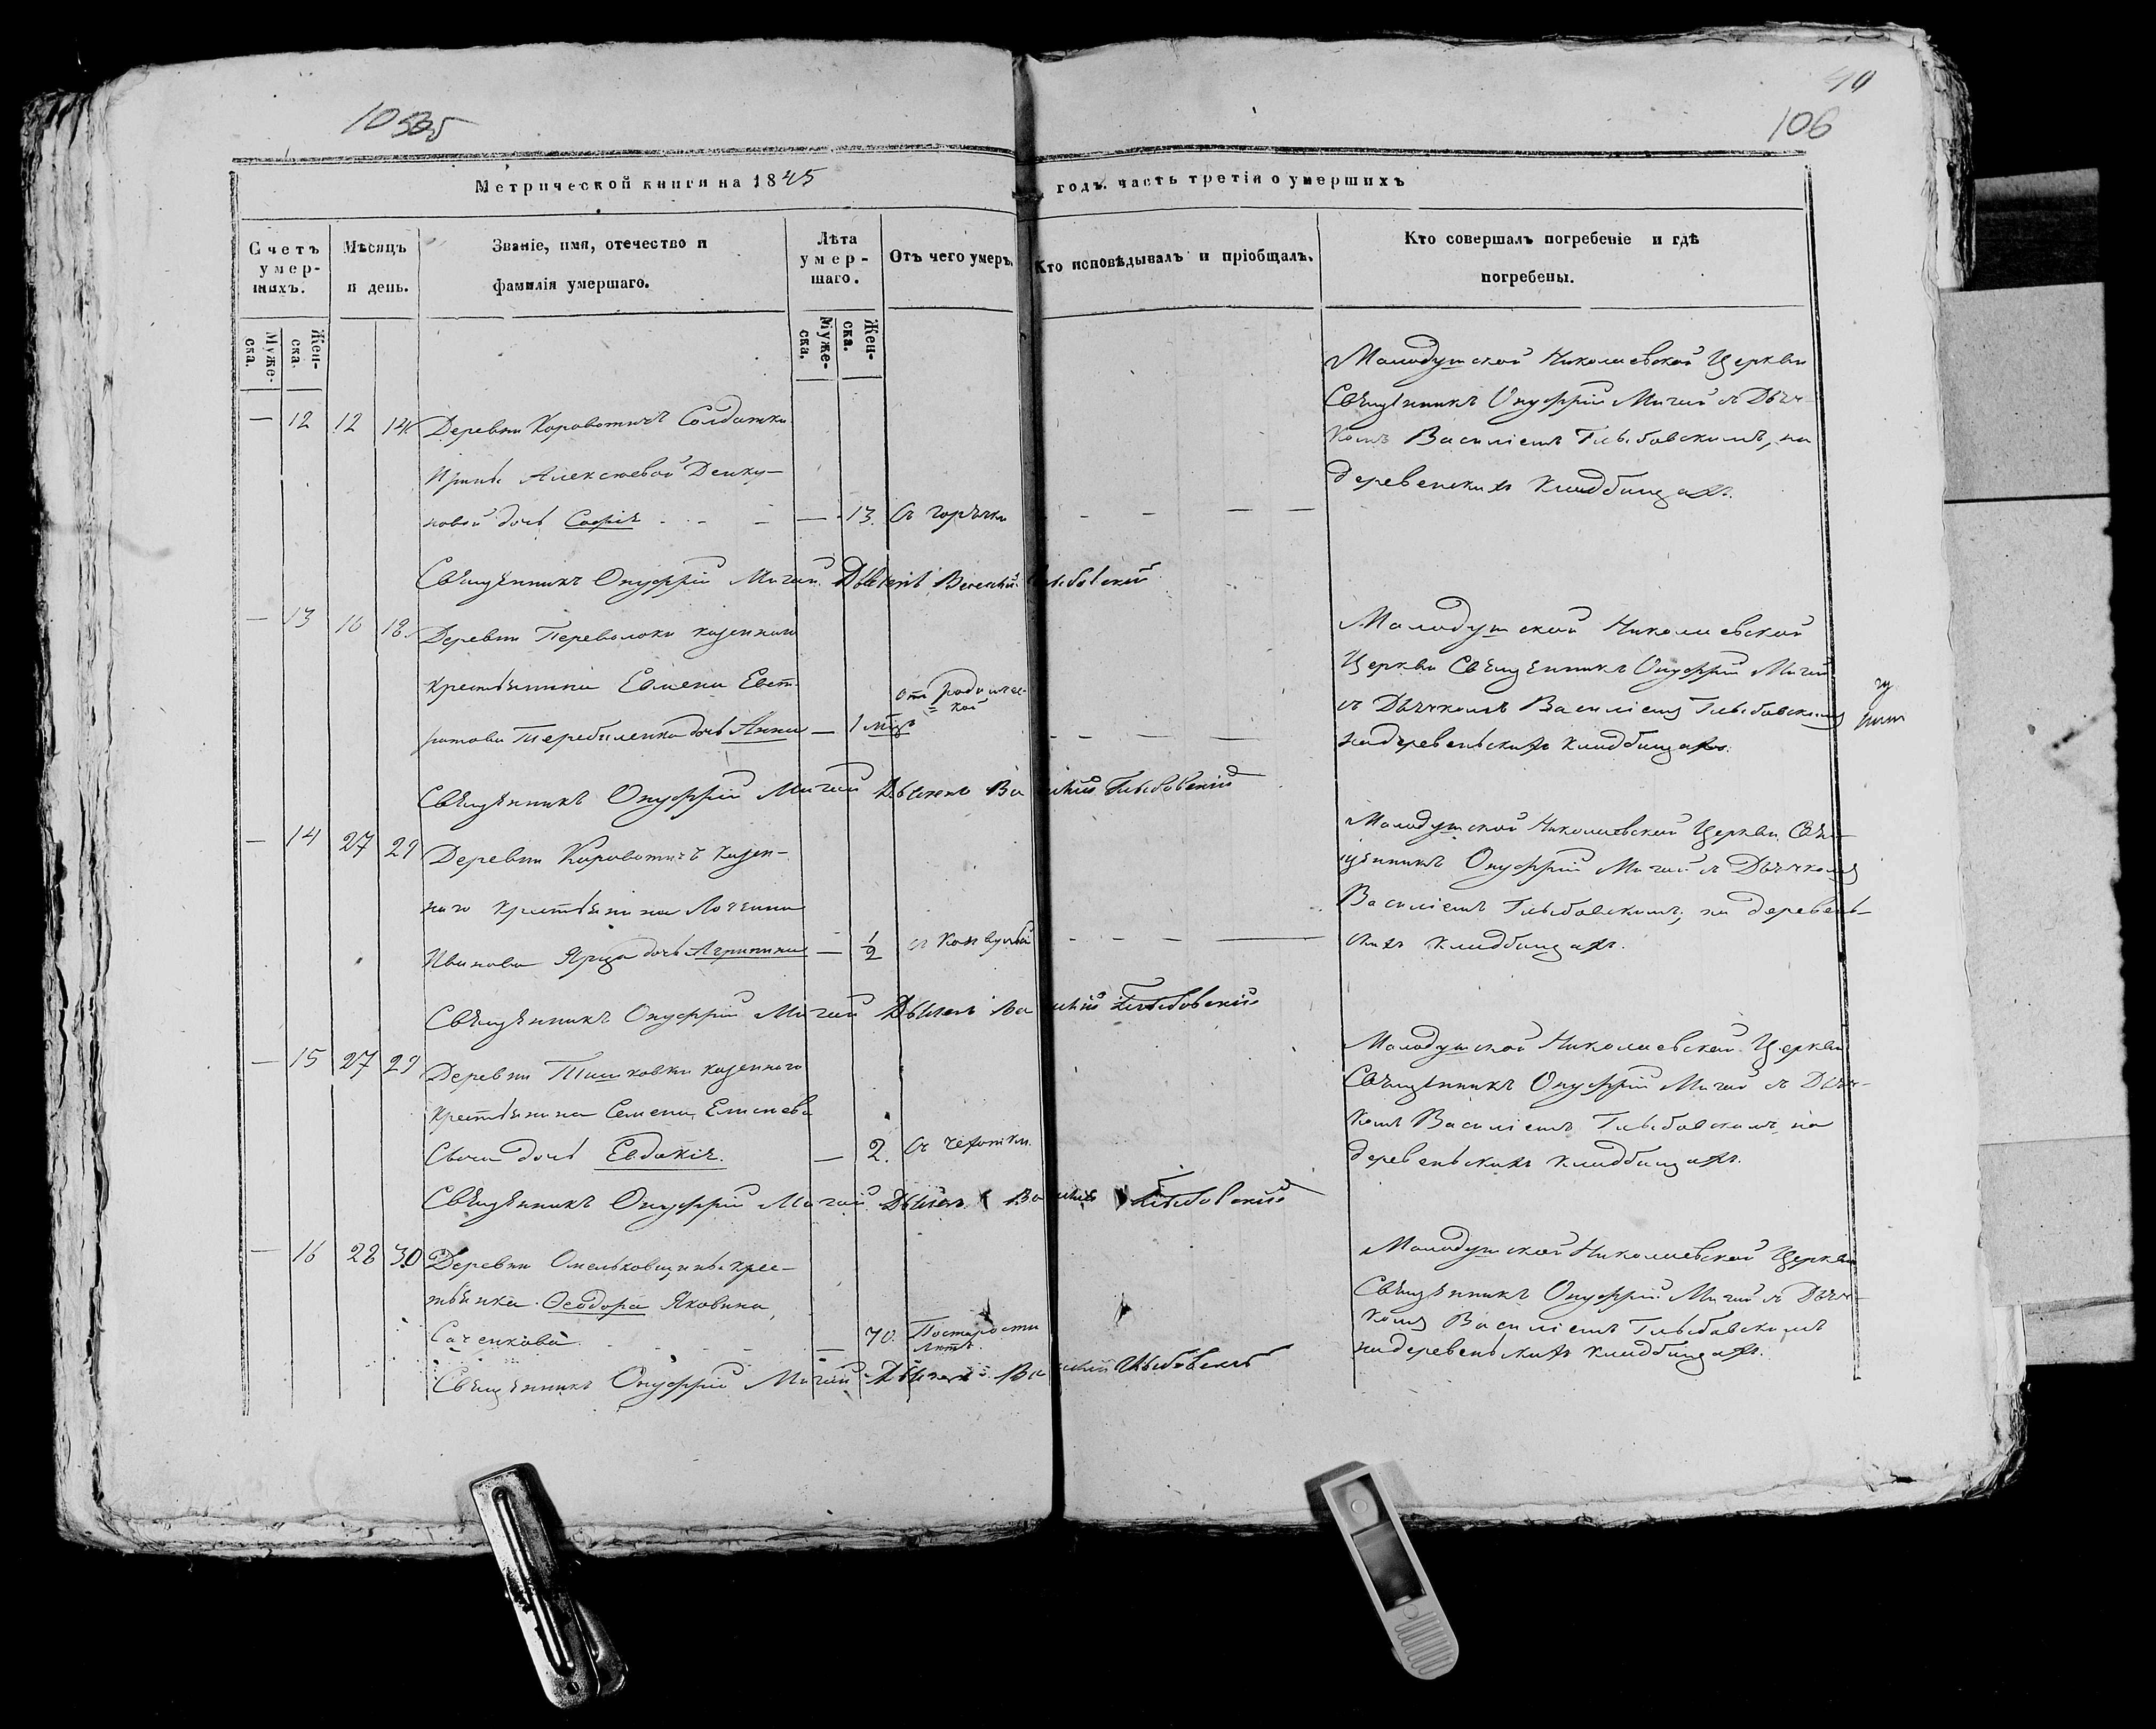 105об
40
106
Метрической книги на 1845
годъ часть третія о умершихъ
Счетъ умер-шихъ.
Мѣсяцъ и день.
Званіе, имя, отечество и
фамилія умершаго.
Лѣта умер-шаго.
Отъ чего умеръ.
Кто исповѣдывалъ и пріобщалъ.
Кто совершалъ погребеніе и гдѣ
погребены.
Муже-ска.
Жен-ска.
Муже-ска.
Жен-ска.
— 12 12 14 Деревни Короватичъ Солдатки
Ирины Алексѣевой Демку-
новой дочь Софія — 13. Съ горячки
Молодушской Николаевской Церкви
Священникъ Онуфрій Мигай съ Дьяч-
комъ Василіемъ Глыбовскимъ, на
деревенскихъ кладбищахъ.
Священникъ Онуфрій Мигай Дьячекъ Василій Глыбовскій
— 13 16 18 Деревни Переволоки казеннаго
крестьянина Евмена Евст-
ратова Теребиленка дочь Анна — 1 мця
отъ родимчес-
кой
Молодушской Николаевской
Церкви Священникъ Онуфрій Мигай
съ Дьячкомъ Василіемъ Глыбовскимъ
на деревеньскихъ кладбищахъ.
Священникъ Онуфрій Мигай Дьячекъ Василій Глыбовскій
— 14 27 29 Деревни Короватичъ казен-
наго крестьянина Логвина
Иванова дочь Агрипина — 1/2 съ конвульсіи
Молодушской Николаевской Церкви Свя-
щенникъ Онуфрій Мигай съ Дьячкомъ
Василіемъ Глыбовскимъ, на деревень-
скихъ кладбищахъ.
Священникъ Онуфрій Мигай Дьячекъ Василій Глыбовскій
— 15 27 29 Деревни Тишковки казеннаго
крестьянина Семена Елисеева
дочь Евдокія. — 2. Съ чехотки.
Молодушской Николаевской Церкви
Священникъ Онуфрій Мигай съ Дьяч-
комъ Василіемъ Глыбовскимъ на
деревеньскихъ кладбищахъ.
Священникъ Онуфрій Мигай Дьячекъ Василій Глыбовскій
— 16 28 30 Деревни Омельковщины крес-
тьянка Ѳеодора Яковина
Саченкова. — 70. По старости
лѣтъ.
Молодушской Николаевской Церкви
Священникъ Онуфрій Мигай съ Дьяч-
комъ Василіемъ Глыбовскимъ
на деревеньскихъ кладбищахъ.
Священникъ Онуфрій Мигай Дьячекъ Василій Глыбовскій